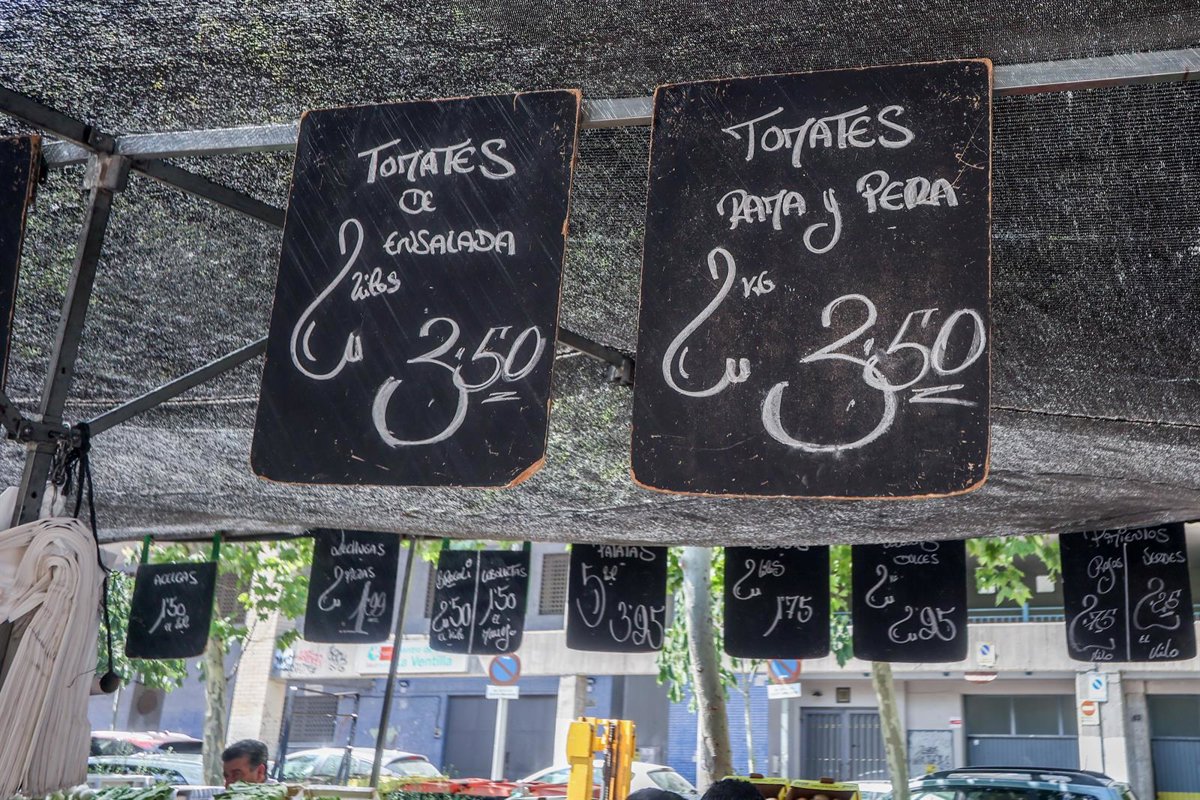 TOMATES
DE
ENSALADA
2 kilos
3'50
TOMATES
RAMA y PERA
2 KG
3'50
ACELGAS
1'50
el kilo
LECHUGAS
2 PIEZAS
1'99
BROCOLI
2'50
el kilo
1'50
el Manojo
PATATAS
5 kg
3'95
2 kilos
1'75
DULCES
2'95
PIMIENTOS
ROJOS
2'75
kilo
VERDES
2'25
EL
kilo
La Ventilla